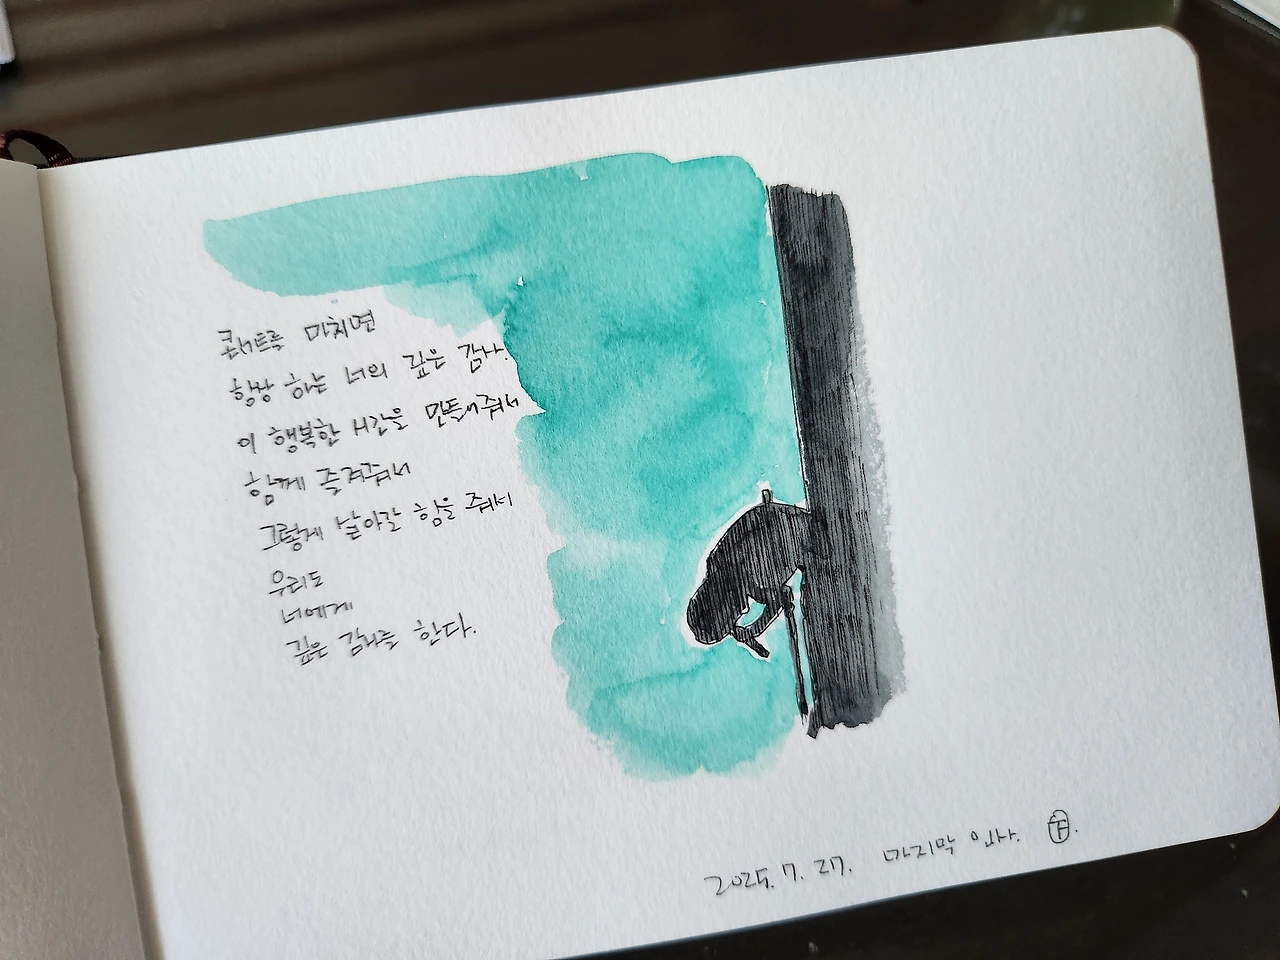 콘서트를 마치면
항상 하는 너의 깊은 감사.
이 행복한 시간을 만들어줘서
함께 즐겨줘서
그렇게 살아갈 힘을 줘서
우리도
너에게
깊은 감사를 한다.
2025. 7. 27. 마지막 인사.